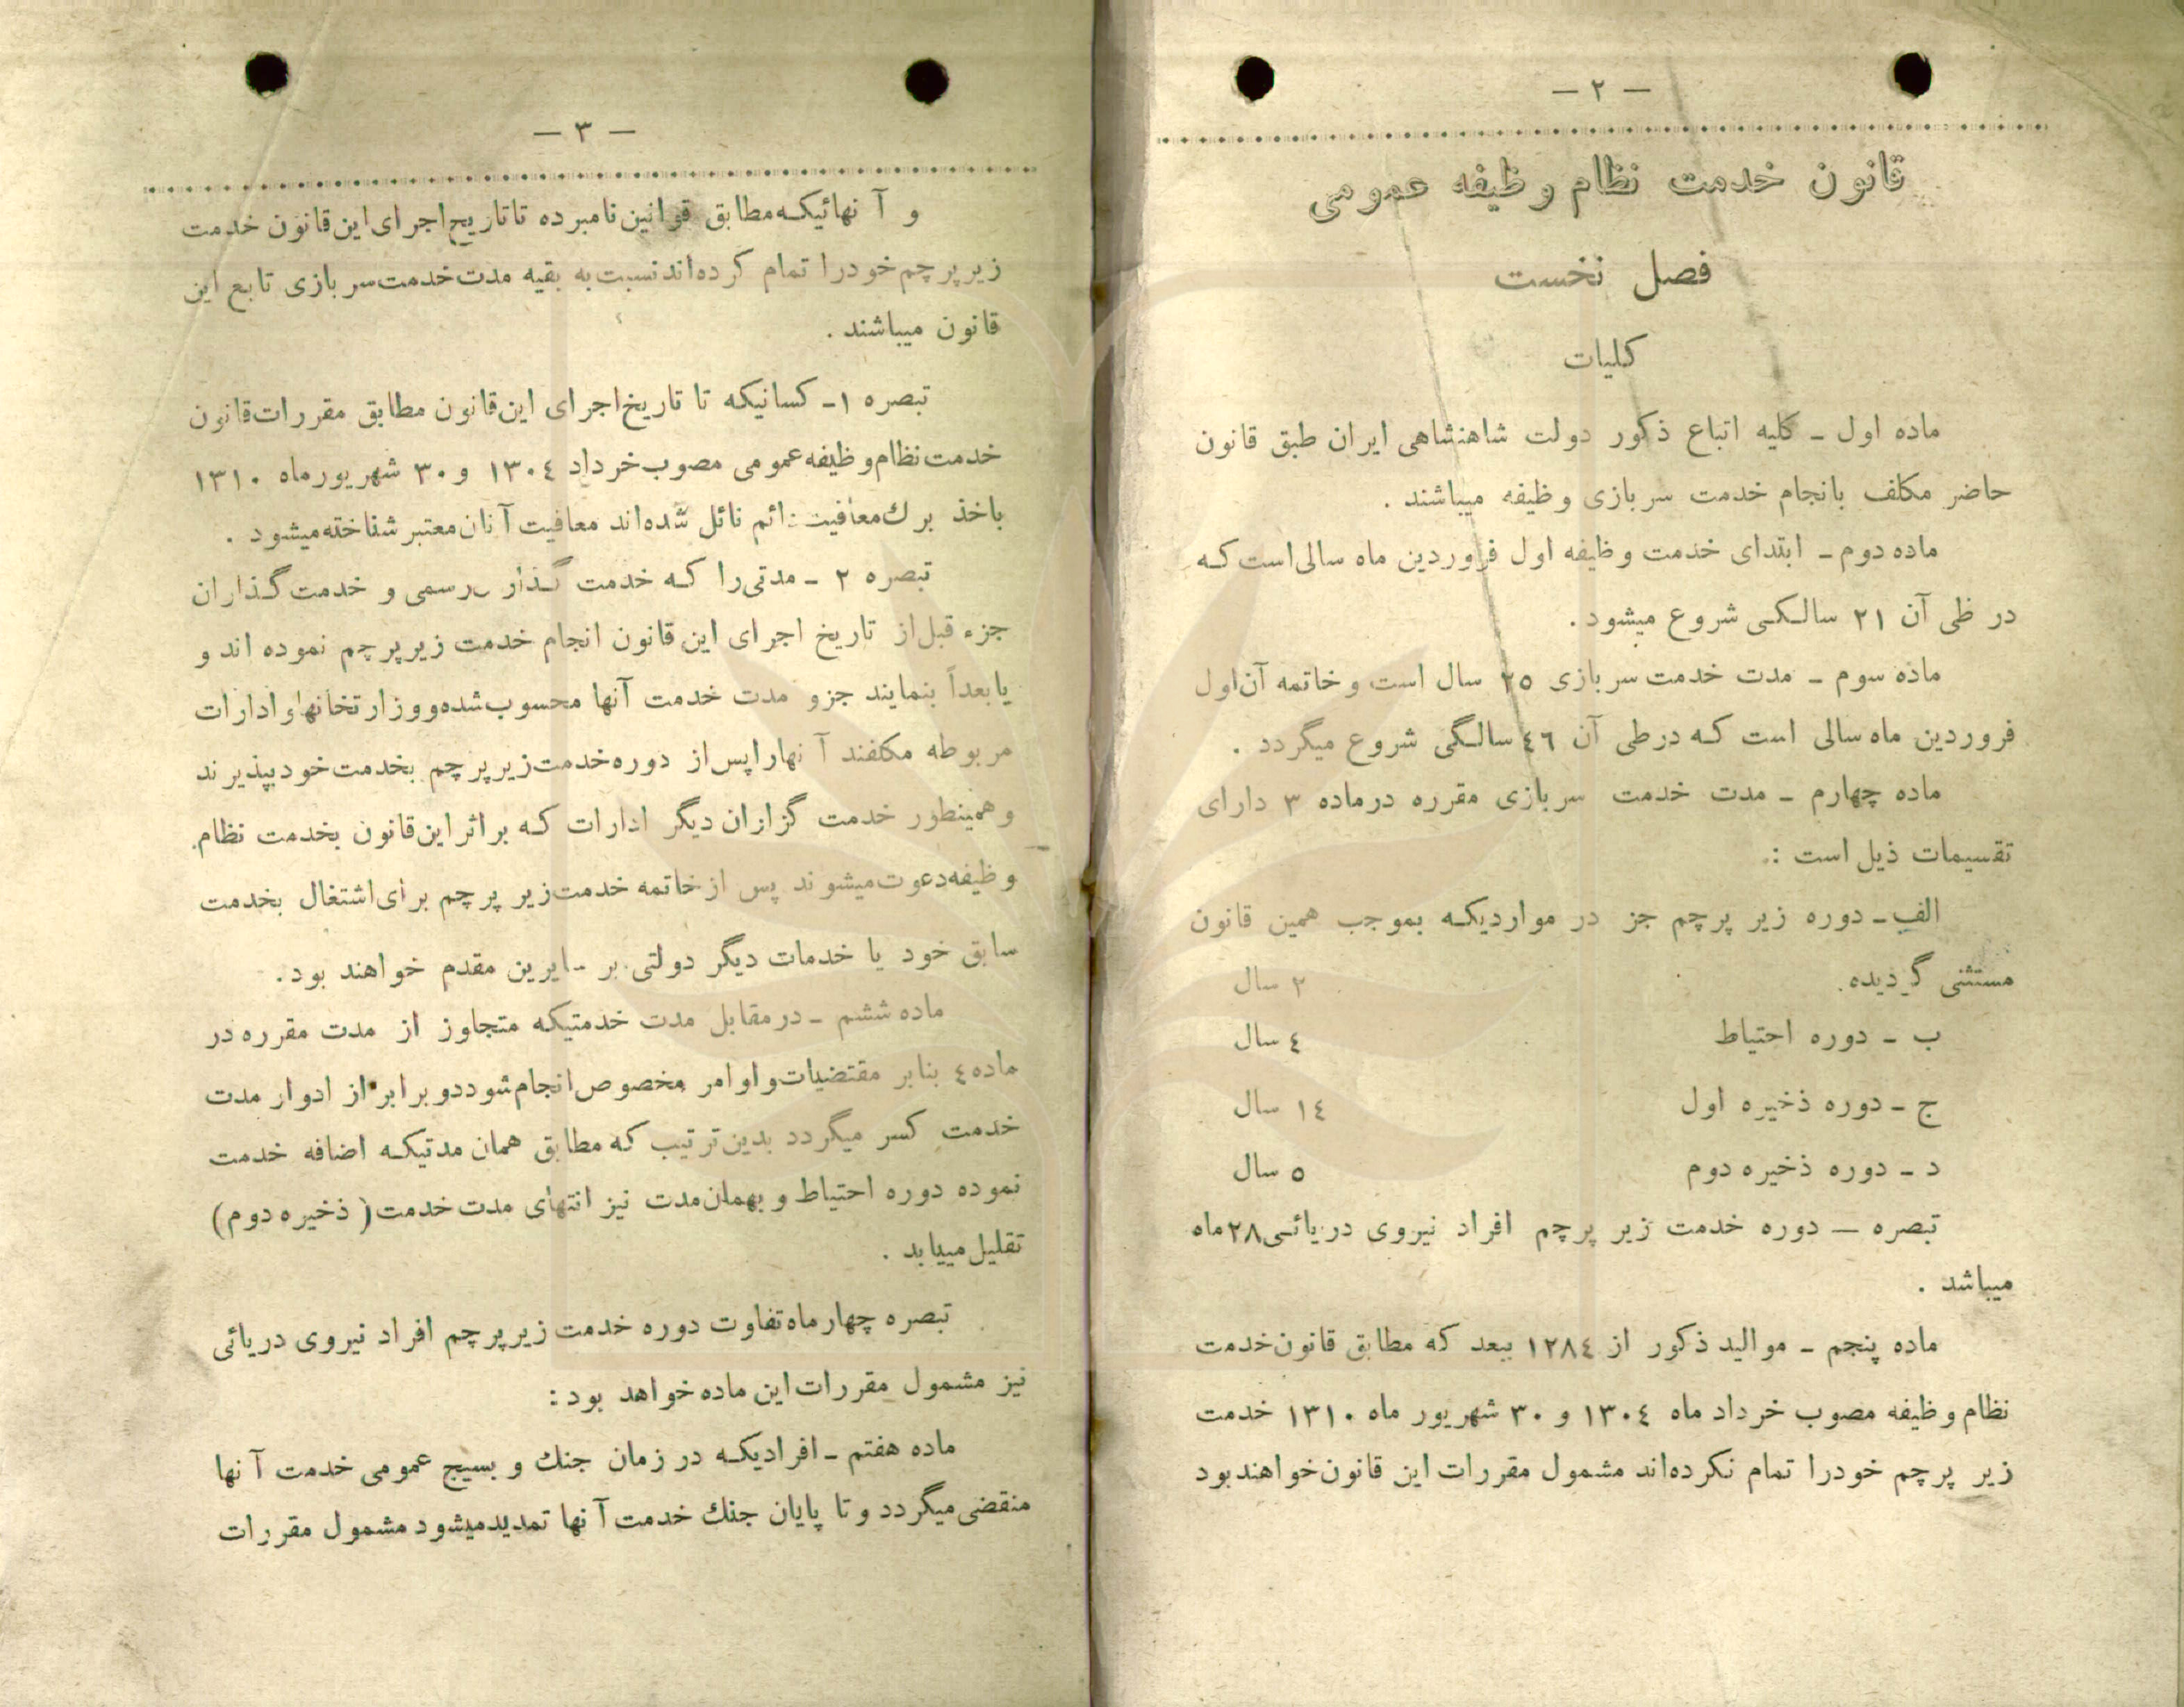 — ۲ —
قانون خدمت نظام وظیفه عمومی
فصل نخست
کلیات
ماده اول ـ کلیه اتباع ذکور دولت شاهنشاهی ایران طبق قانون
حاضر مکلف بانجام خدمت سربازی وظیفه میباشند .
ماده دوم ـ ابتدای خدمت وظیفه اول فروردین ماه سالی است که
در طی آن ۲۱ سالگی شروع میشود .
ماده سوم ـ مدت خدمت سربازی ۲۵ سال است و خاتمه آن اول
فروردین ماه سالی است که در طی آن ٤٦ سالگی شروع میگردد .
ماده چهارم ـ مدت خدمت سربازی مقرره در ماده ۳ دارای
تقسیمات ذیل است :
الف ـ دوره زیر پرچم جز در مواردیکه بموجب همین قانون
مستثنی گردیده . ۲ سال
ب ـ دوره احتیاط ٤ سال
ج ـ دوره ذخیره اول ۱٤ سال
د ـ دوره ذخیره دوم ٥ سال
تبصره — دوره خدمت زیر پرچم افراد نیروی دریائی ۲۸ ماه
میباشد .
ماده پنجم ـ موالید ذکور از ۱۲۸٤ ببعد که مطابق قانون خدمت
نظام وظیفه مصوب خرداد ماه ۱۳۰٤ و ۳۰ شهریور ماه ۱۳۱۰ خدمت
زیر پرچم خودرا تمام نکرده‌اند مشمول مقررات این قانون خواهند بود
— ۳ —
و آنهائیکه مطابق قوانین نامبرده تا تاریخ اجرای این قانون خدمت
زیر پرچم خودرا تمام کرده‌اند نسبت به بقیه مدت خدمت سربازی تابع این
قانون میباشند .
تبصره ۱ـ کسانیکه تا تاریخ اجرای این قانون مطابق مقررات قانون
خدمت نظام وظیفه عمومی مصوب خرداد ۱۳۰٤ و ۳۰ شهریور ماه ۱۳۱۰
باخذ برك معافیت دائم نائل شده‌اند معافیت آنان معتبر شناخته میشود .
تبصره ۲ ـ مدتی را که خدمت گذاران رسمی و خدمت گذاران
جزء قبل از تاریخ اجرای این قانون انجام خدمت زیر پرچم نموده اند و
یا بعداً بنمایند جزو مدت خدمت آنها محسوب شده و وزارتخانها و ادارات
مربوطه مکلفند آنها را پس از دوره خدمت زیر پرچم بخدمت خود بپذیرند
و همینطور خدمت گزاران دیگر ادارات که بر اثر این قانون بخدمت نظام
وظیفه دعوت میشوند پس از خاتمه خدمت زیر پرچم برای اشتغال بخدمت
سابق خود یا خدمات دیگر دولتی بر سایرین مقدم خواهند بود .
ماده ششم ـ در مقابل مدت خدمتیکه متجاوز از مدت مقرره در
ماده ٤ بنابر مقتضیات و اوامر مخصوص انجام شود دو برابر از ادوار مدت
خدمت کسر میگردد بدین ترتیب که مطابق همان مدتیکه اضافه خدمت
نموده دوره احتیاط و بهمان مدت نیز انتهای مدت خدمت ( ذخیره دوم )
تقلیل مییابد .
تبصره چهار ماه تفاوت دوره خدمت زیر پرچم افراد نیروی دریائی
نیز مشمول مقررات این ماده خواهد بود :
ماده هفتم ـ افرادیکه در زمان جنك و بسیج عمومی خدمت آنها
منقضی میگردد و تا پایان جنك خدمت آنها تمدید میشود مشمول مقررات